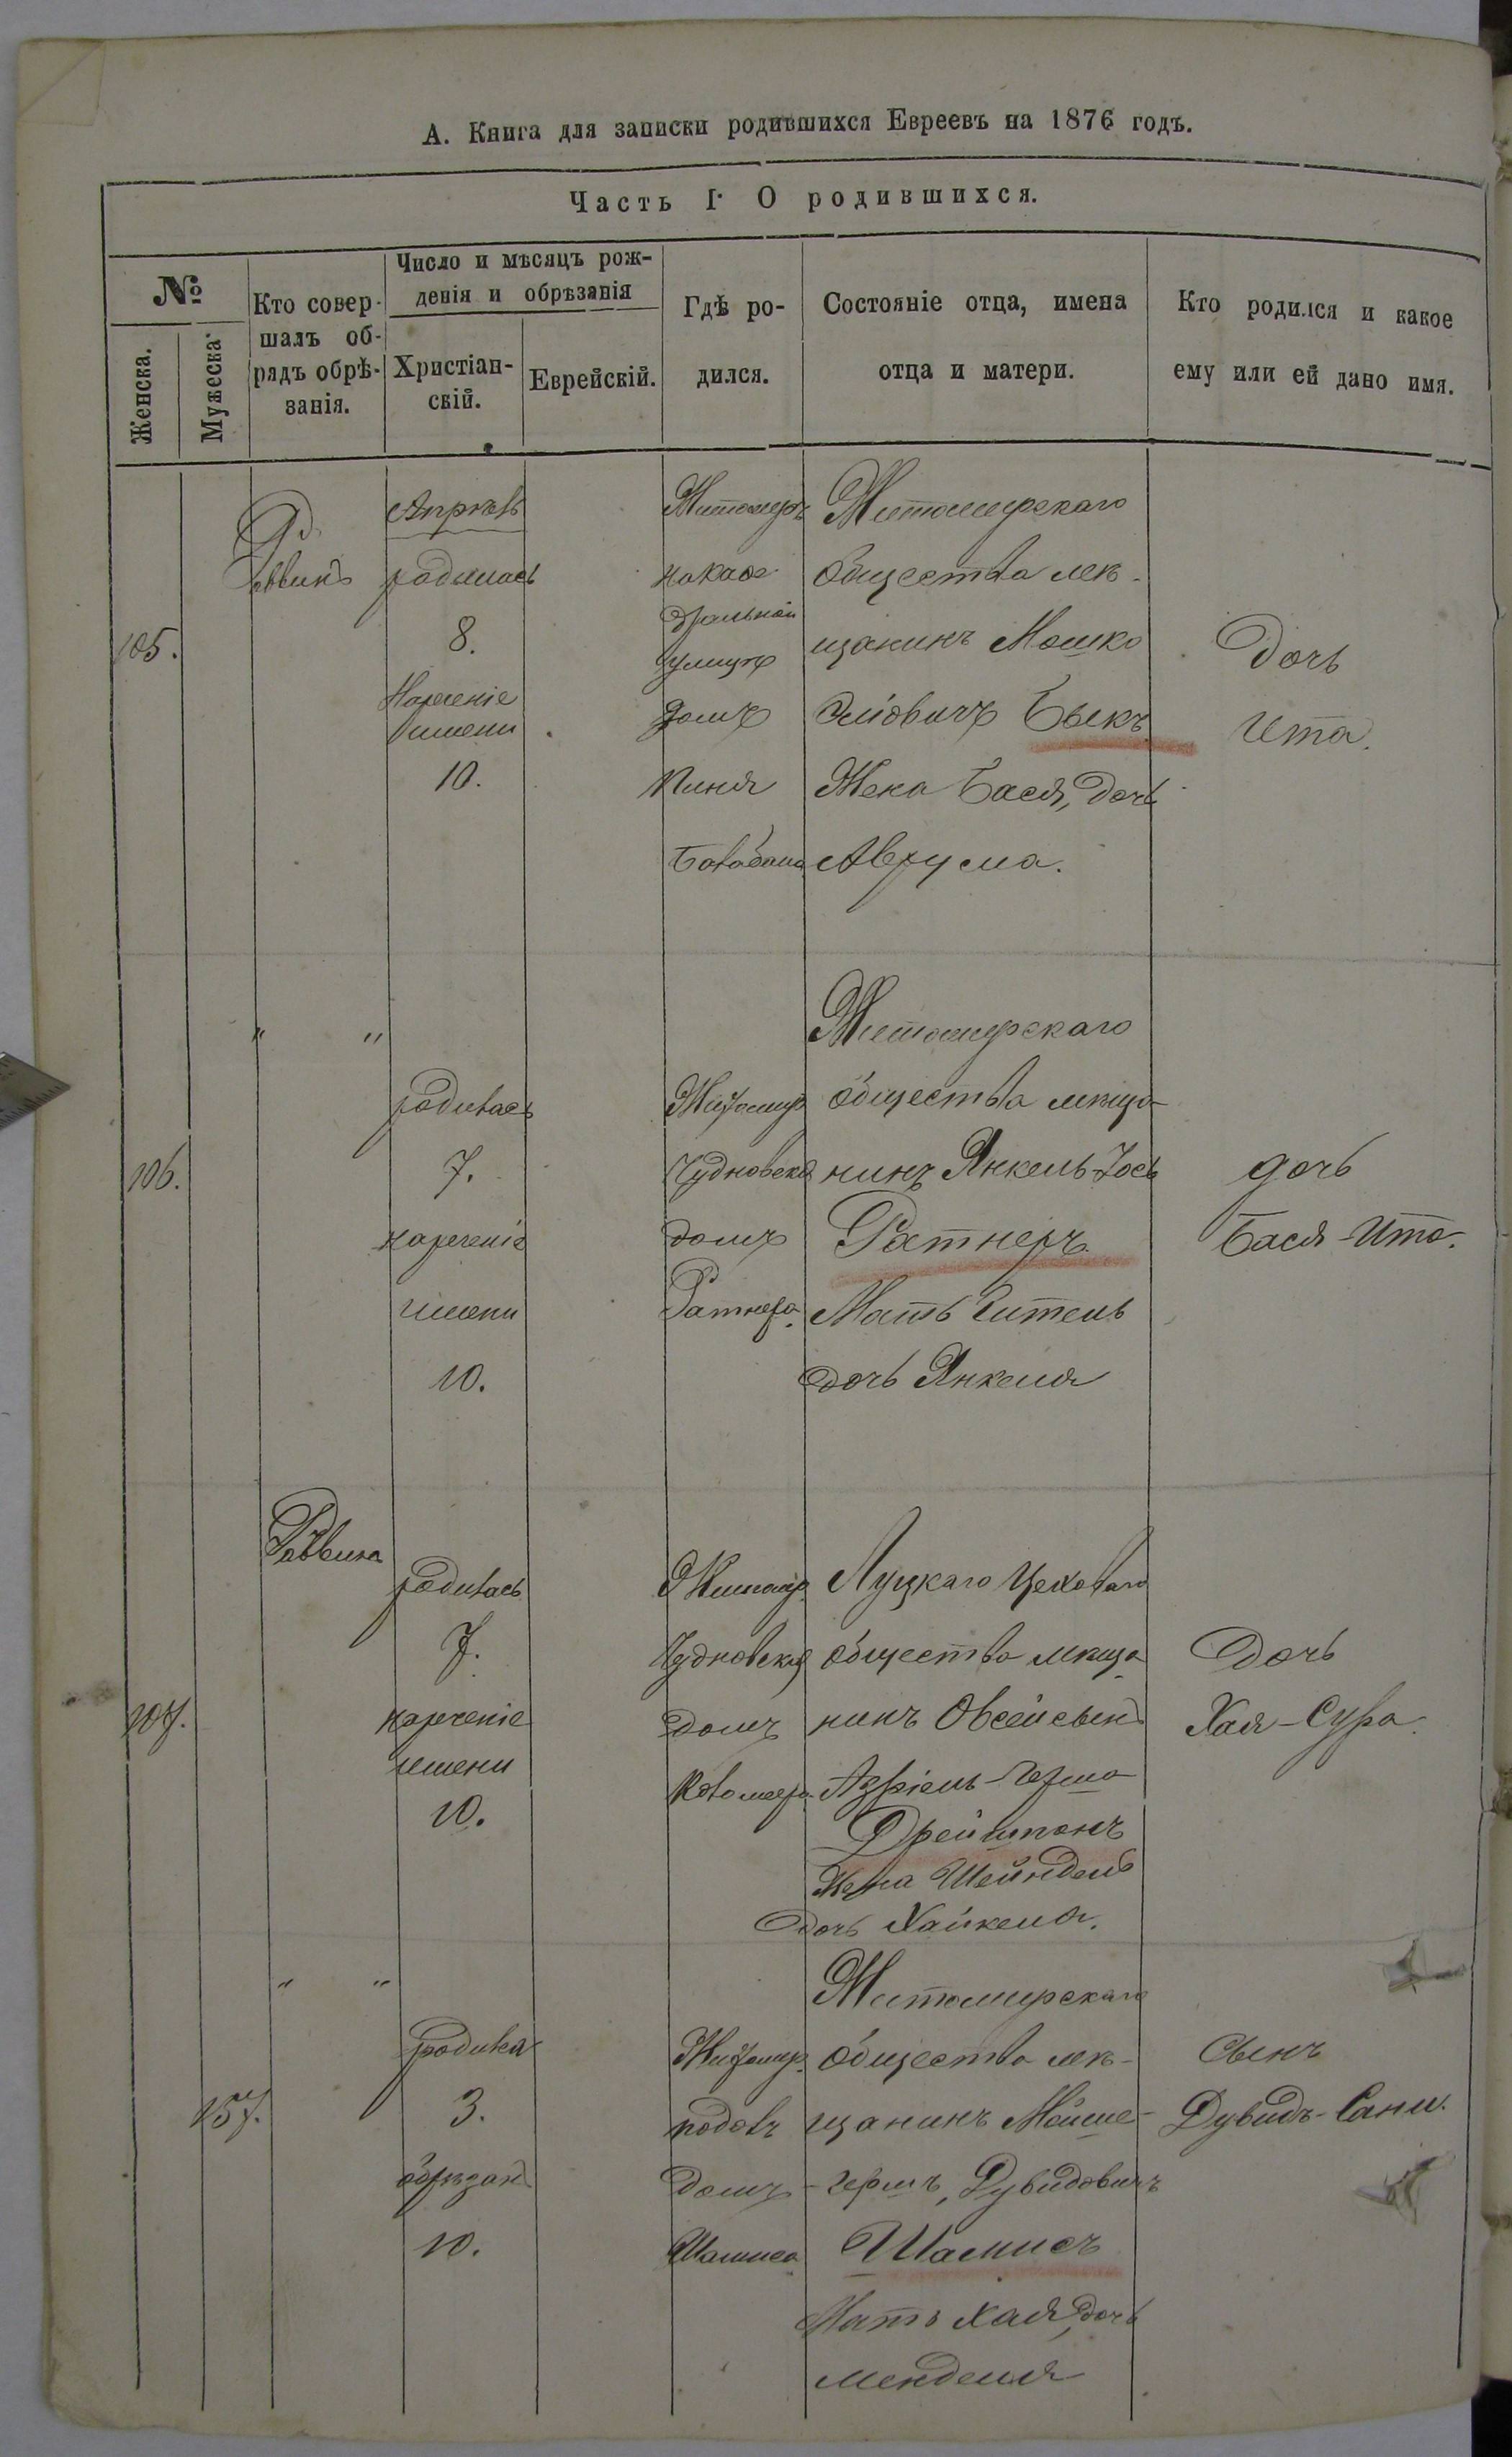 А. Книга для записки родившихся Евреевъ на 1876 годъ.
Часть I. О родившихся.
№
Женска.
Мужеска.
Кто совер-
шалъ об-
рядъ обрѣ-
занія.
Число и мѣсяцъ рож-
денія и обрѣзанія
Христіан-
скій.
Еврейскій.
Гдѣ ро-
дился.
Состояніе отца, имена
отца и матери.
Кто родился и какое
ему или ей дано имя.
105.
Раввинъ
Апрѣль
родилась
8.
Нареченіе
имени
10.
Житомиръ
на Каѳе
дральной
улицѣ
домъ
Пиня
Балабана
Житомирскаго
общества мѣ-
щанинъ Мошко
Быкъ
Жена Бася, дочь
Аврума.
Дочь
Ита.
106.
" "
родилась
7.
нареченіе
имени
10.
Житомир
Чудновская
домъ
Ратнера.
Житомирскаго
общества мѣща-
нинъ Янкель-Іось
Ратнеръ.
Мать Гитель
дочь Янкеля
дочь
Бася-Ита.
107.
Раввина
родилась
7.
нареченіе
имени
10.
Житомир.
Чудновская
домъ
Луцкаго Цеховаго
общества мѣща
нинъ Овсей сынъ
Азріель-Герша
Дрейшпанъ
Жена Шейндель
дочь Хайкеля.
Дочь
Хая-Сура.
157.
" "
родился
3.
обрѣзан
10.
Житомир.
подолъ
домъ
Шамиса
Житомирскаго
общества мѣ-
щанинъ Мойше-
-Гершъ, Дувидовичъ
Шамисъ
Мать Хая, дочь
Менделя
Сынъ
Дувидъ-Сани.